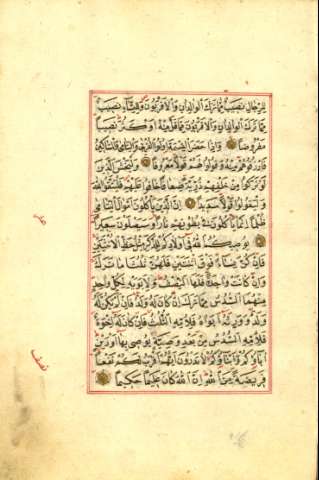 لِلرِّجَالِ نَصِيبٌ مِمَّا تَرَكَ الْوَالِدَانِ وَالْاَقْرَبُونَ وَلِلنِّسَاءِ نَصِيبٌ
مِمَّا تَرَكَ الْوَالِدَانِ وَالْاَقْرَبُونَ مِمَّا قَلَّ مِنْهُ اَوْ كَثُرَ نَصِيبًا
مَفْرُوضًا وَاِذَا حَضَرَ الْقِسْمَةَ اُولُوا الْقُرْبٰى وَالْيَتَامٰى وَالْمَسَاكِينُ
فَارْزُقُوهُمْ مِنْهُ وَقُولُوا لَهُمْ قَوْلًا مَعْرُوفًا وَلْيَخْشَ الَّذِينَ
لَوْ تَرَكُوا مِنْ خَلْفِهِمْ ذُرِّيَّةً ضِعَافًا خَافُوا عَلَيْهِمْ فَلْيَتَّقُوا اللّٰهَ
وَلْيَقُولُوا قَوْلًا سَدِيدًا اِنَّ الَّذِينَ يَاْكُلُونَ اَمْوَالَ الْيَتَامٰى
ظُلْمًا اِنَّمَا يَاْكُلُونَ فِي بُطُونِهِمْ نَارًا وَسَيَصْلَوْنَ سَعِيرًا
يُوصِيكُمُ اللّٰهُ فِي اَوْلَادِكُمْ لِلذَّكَرِ مِثْلُ حَظِّ الْاُنْثَيَيْنِ
فَاِنْ كُنَّ نِسَاءً فَوْقَ اثْنَتَيْنِ فَلَهُنَّ ثُلُثَا مَا تَرَكَ
وَاِنْ كَانَتْ وَاحِدَةً فَلَهَا النِّصْفُ وَلِاَبَوَيْهِ لِكُلِّ وَاحِدٍ
مِنْهُمَا السُّدُسُ مِمَّا تَرَكَ اِنْ كَانَ لَهُ وَلَدٌ فَاِنْ لَمْ يَكُنْ لَهُ
وَلَدٌ وَوَرِثَهُ اَبَوَاهُ فَلِاُمِّهِ الثُّلُثُ فَاِنْ كَانَ لَهُ اِخْوَةٌ
فَلِاُمِّهِ السُّدُسُ مِنْ بَعْدِ وَصِيَّةٍ يُوصِي بِهَا اَوْ دَيْنٍ
اٰبَاؤُكُمْ وَاَبْنَاؤُكُمْ لَا تَدْرُونَ اَيُّهُمْ اَقْرَبُ لَكُمْ نَفْعًا
فَرِيضَةً مِنَ اللّٰهِ اِنَّ اللّٰهَ كَانَ عَلِيمًا حَكِيمًا
نصف